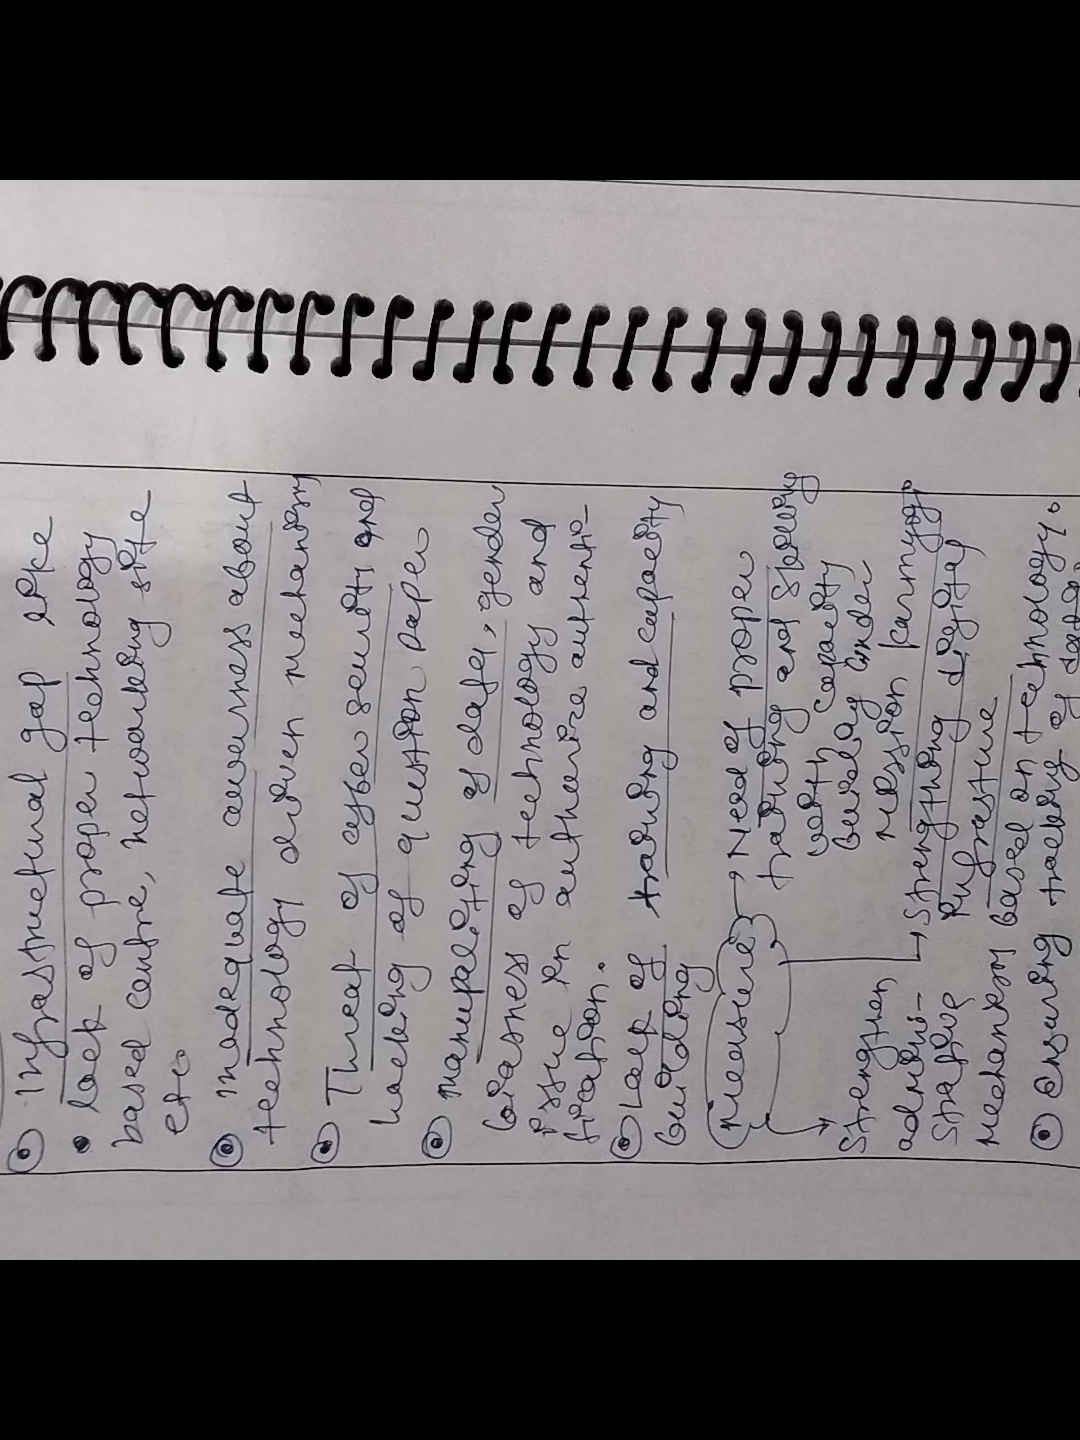 Infrastructural gap like
lack of proper technology
based centre, networking site
etc.
inadequate awareness about
technology driven mechanism
Threat of cyber security and
hacking of question paper
manupaliting of data, gender
biasness of technology and
issue in authorize authenti-
fication.
Lack of training and capacity
building
measure
Need of proper
training and skilling
with capacity
building under
mission karmyogi
Strengthing digital
infrasture
Strengthen
admini-
strative
mechanism based on technology.
Ensuring tracking of data